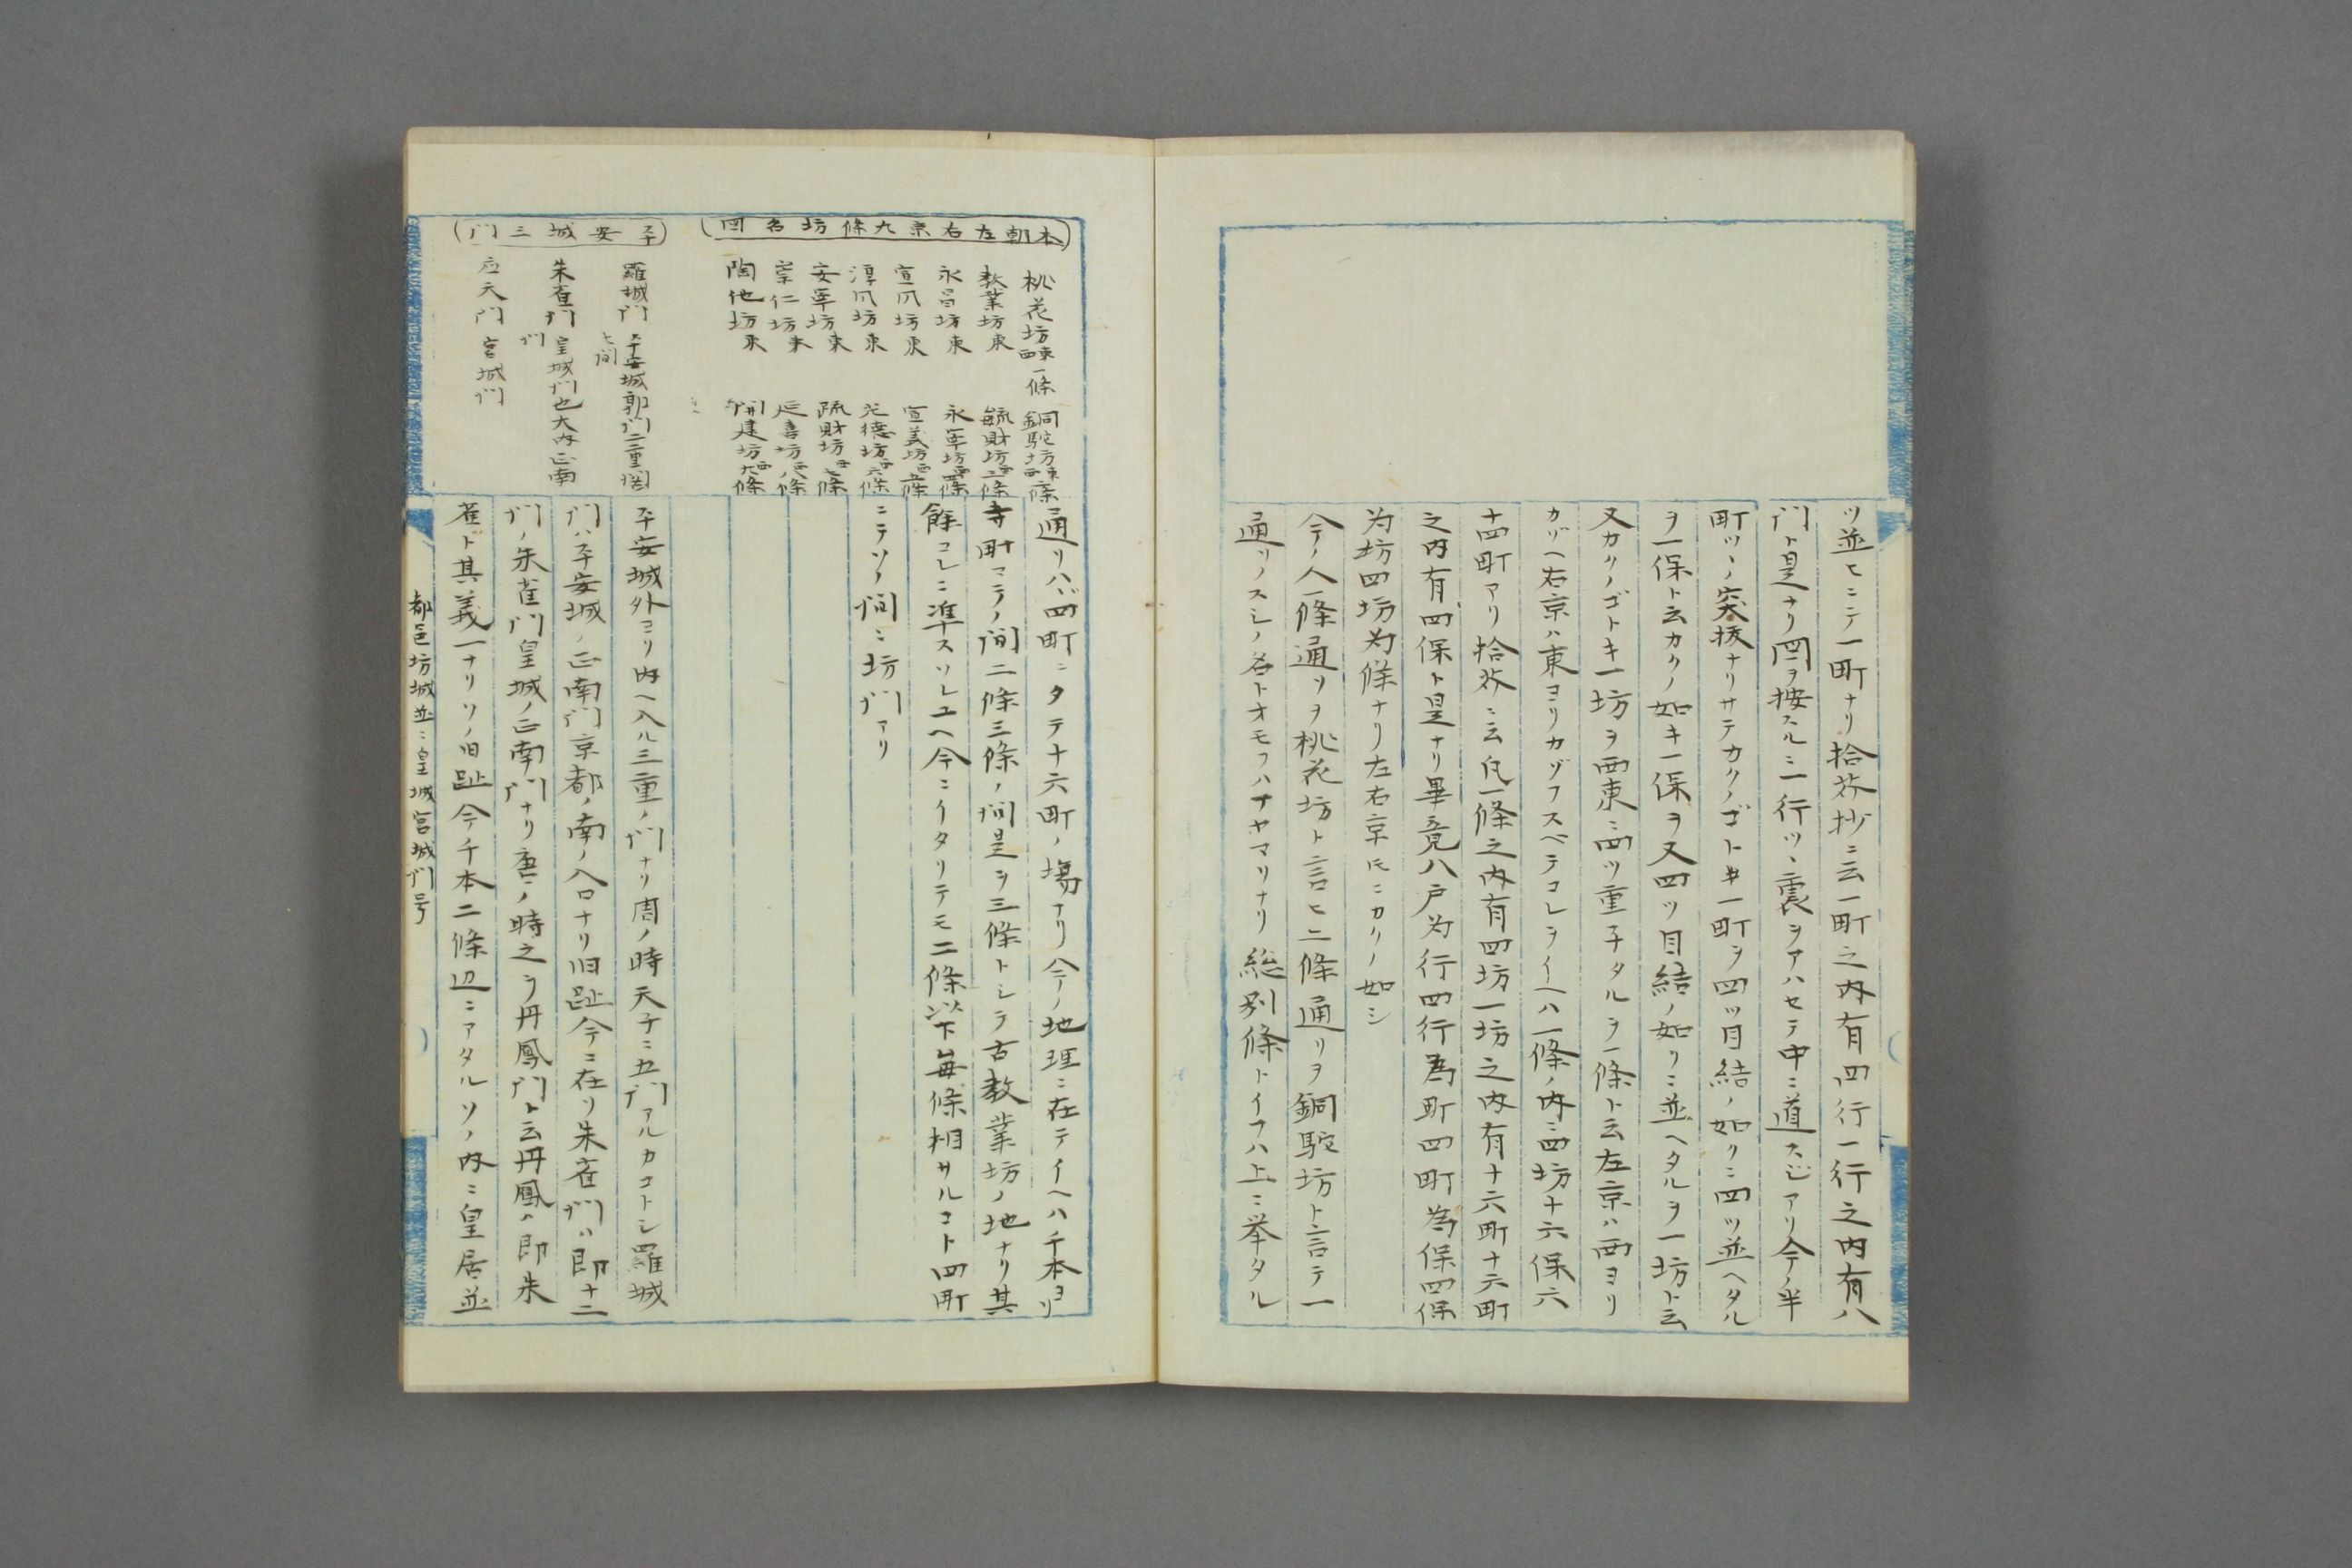 ツ並ヒニテ一町ナリ拾芥抄ニ云一町之内有四行一行之内有八
門ト是ナリ図ヲ按スルニ一行ツヽ裏ヲアハセテ中ニ道スヂアリ今ノ半
町ツヽノ突抜ナリサテカクノゴトキ一町ヲ四ツ目結ノ如クニ四ツ並ヘタル
ヲ一保ト云カクノ如キ一保ヲ又四ツ目結ノ如クニ並ヘタルヲ一坊ト云
又カクノゴトキ一坊ヲ西東ニ四ツ重子タルヲ一條ト云左京ハ西ヨリ
カゾヘ右京ハ東ヨリカゾフスベテコレヲイヘハ一條ノ内ニ四坊十六保六
十四町アリ拾芥ニ云凡一條之内有四坊一坊之内有十六町十六町
之内有四保ト是ナリ畢竟八戸为行四行為町四町為保四保
为坊四坊为條ナリ左右京圧ニカクノ如シ
今ノ人一條通ヲ桃花坊ト言ヒ二條通リヲ銅駝坊ト言テ一
通リノスシノ名トオモフハアヤマリナリ総別條トイフハ上ニ挙タル
本朝左右京九條坊名図
桃花坊東西一條 銅駝坊東西二條
教業坊東 毓財坊西三條
永昌坊東 永寧坊西四條
宣风坊東 宣義坊西五條
淳风坊東 光德坊西六條
安寧坊東 疏財坊西七條
崇仁坊東 延喜坊西八條
陶他坊東 開建坊西九條
平安城三門
羅城門 平安城郭門二重閣
七間
朱雀門 皇城門也大内正南
門
応天門 宮城門
通リハ四町ニタテ十六町ノ場ナリ今ノ地理ニ在テイヘハ千本ヨリ
寺町マテノ間二條三條ノ間是ヲ三條トシテ古教業坊ノ地ナリ其
餘コレニ準スソレユヘ今ニイタリテモ二條以下毎條相サルコト四町
ニテソノ間ニ坊門アリ
平安城外ヨリ内ヘ入ル三重ノ門ナリ周ノ時天子ニ五門アルカコトシ羅城
門ハ平安城ノ正南門京都ノ南ノ入口ナリ旧趾今ニ在リ朱雀門ハ即十二
門ノ朱雀門皇城ノ正南門ナリ唐ノ時之ヲ丹鳳門ト云丹鳳ハ即朱
雀ト其義一ナリソノ旧趾今千本二條辺ニアタルソノ内ニ皇居並
都邑坊城並ニ皇城宮城門号